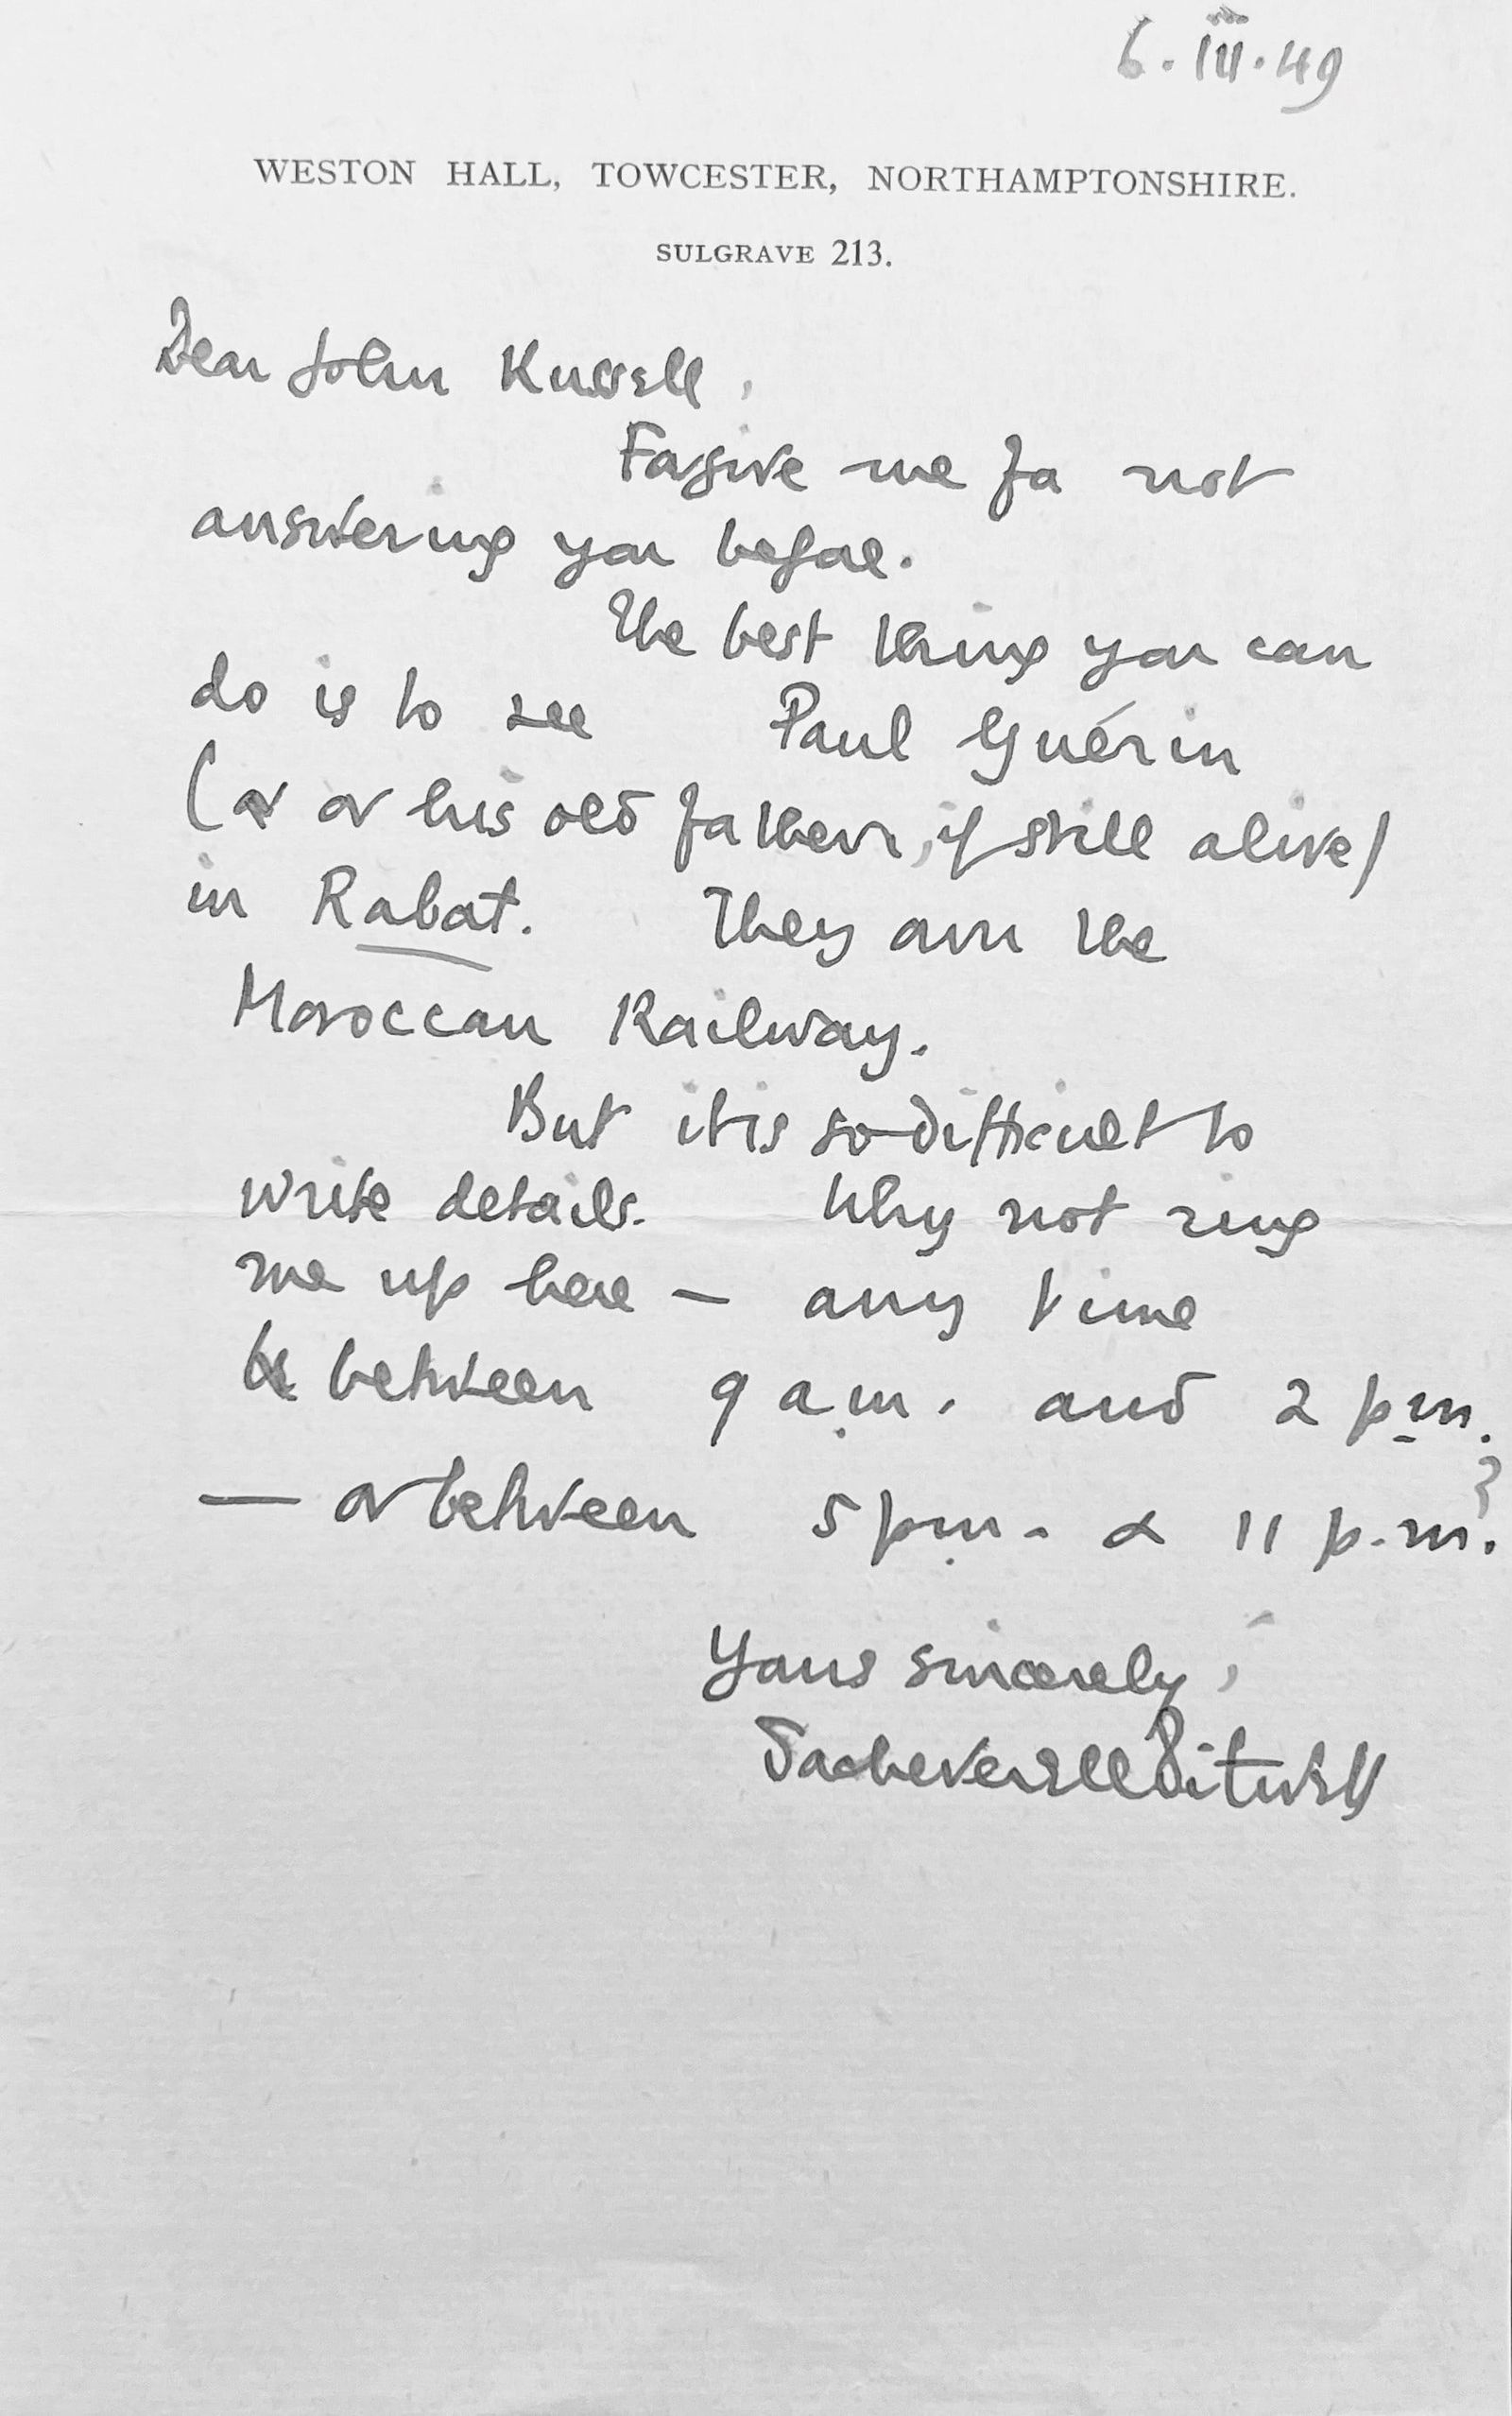 6. III. 49
WESTON HALL, TOWCESTER, NORTHAMPTONSHIRE.
SULGRAVE 213.
Dear John Russell,
Forgive me for not
answering you before.
The best thing you can
do is to see Paul Guérin
(or or his old father, if still alive)
in Rabat. They own the
Moroccan Railway.
But it is so difficult to
write details. Why not ring
me up here — any time
between 9 a.m. and 2 p.m.
— or between 5 p.m. & 11 p.m.?
Yours sincerely,
Sacheverell Sitwell